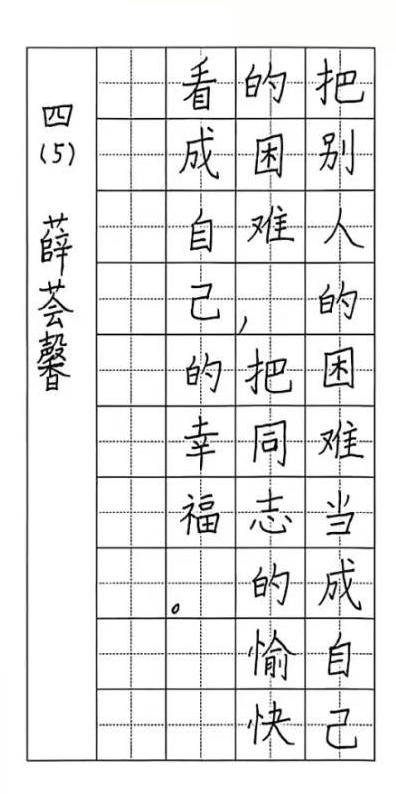 把别人的困难当成自己
的困难，把同志的愉快
看成自己的幸福。
四(5) 薛荟馨